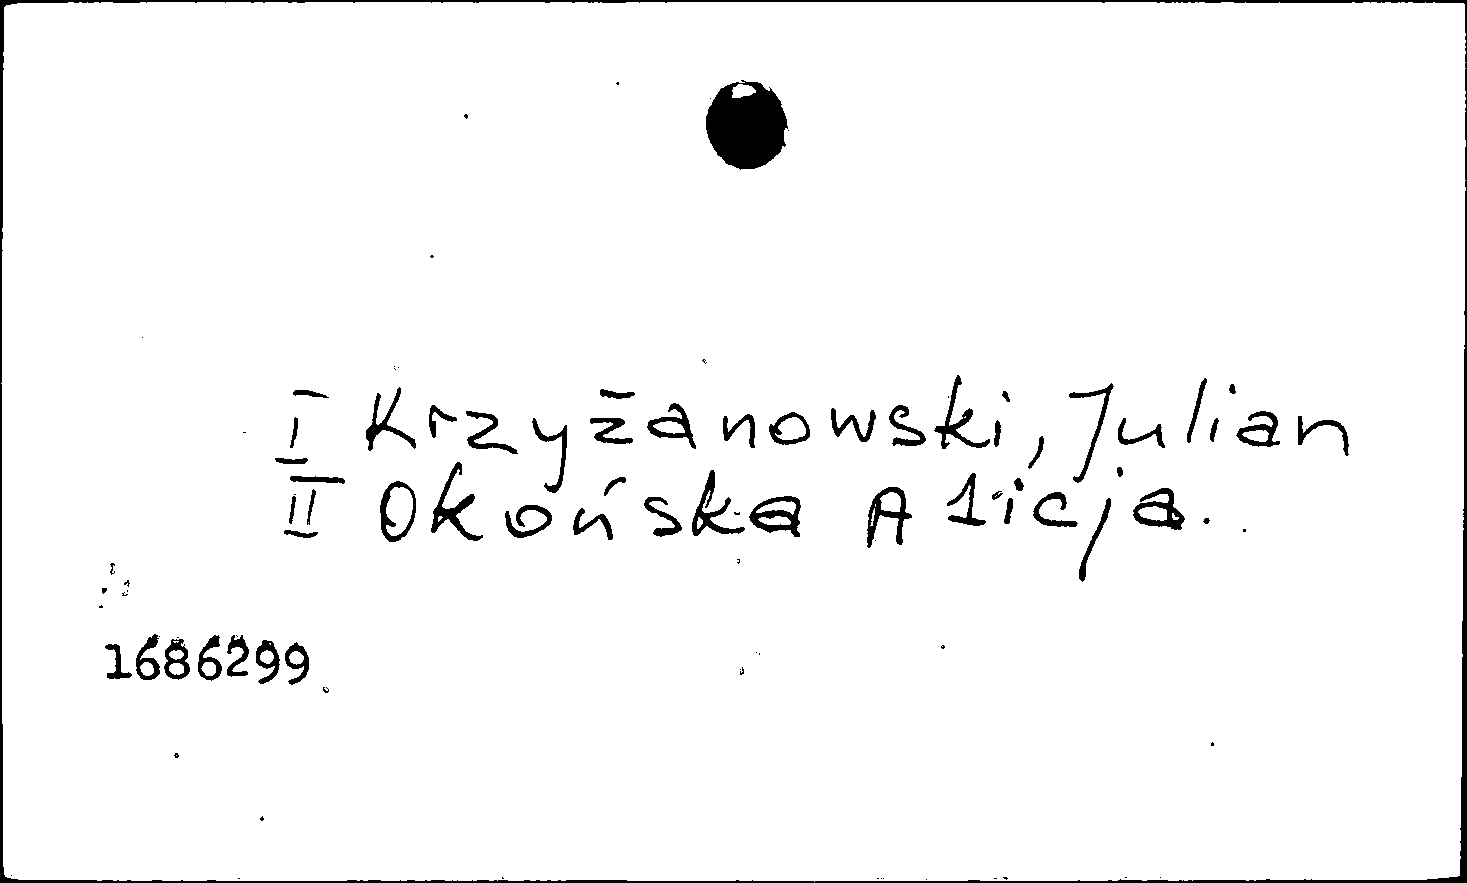 I Krzyżanowski, Julian
II Okońska Alicja.
1686299